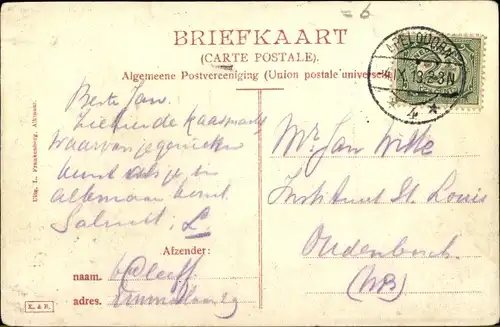 = 6
BRIEFKAART
(CARTE POSTALE).
Algemeene Postvereeniging (Union postale universelle)
APELDOORN
4
Beste Jan,
Ziehier de kaasmarkt
waarvan je genieten
kunt als je in
Alkmaar komt.
Saluut, L
Afzender:
naam.
adres.
Mr. Jan Witte
Instituut St. Louis
Oudenbosch
(NB)
Uitg. L. Frankenberg, Alkmaar.